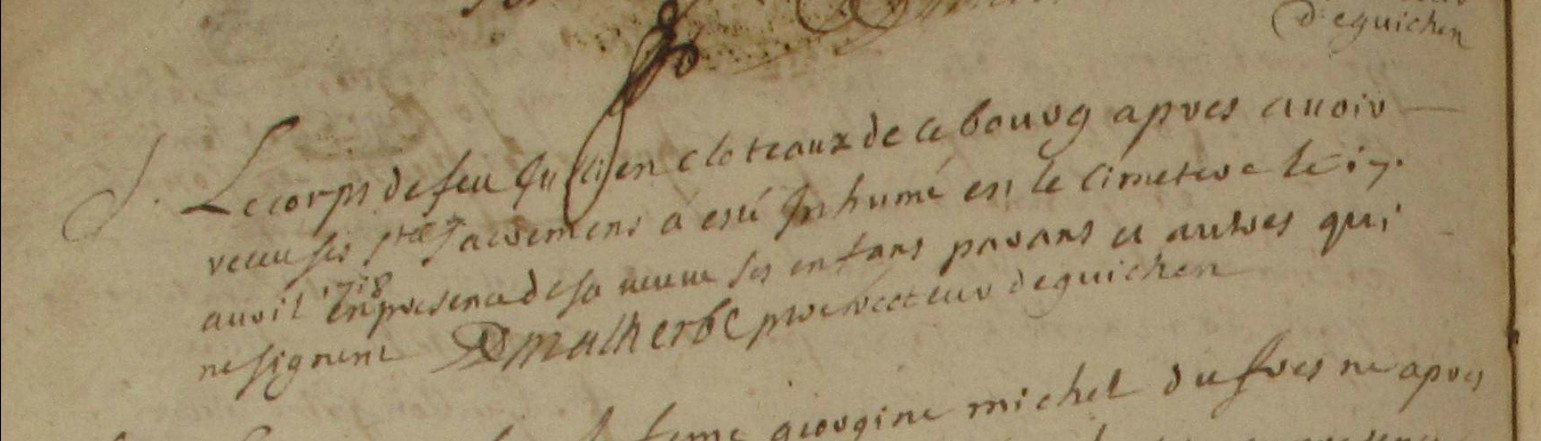 d'eguichen
J. Le corps de feu Jullien cloteaux de ce bourg apres auoir
receu ses stes sacremens a esté Inhumé en le cimetere le 17.
auril 1718 en presence de sa veuve ses enfans parans et autres qui
ne signent D malherbe ptre recteur deguichen
feme georgine michel du fresne apres